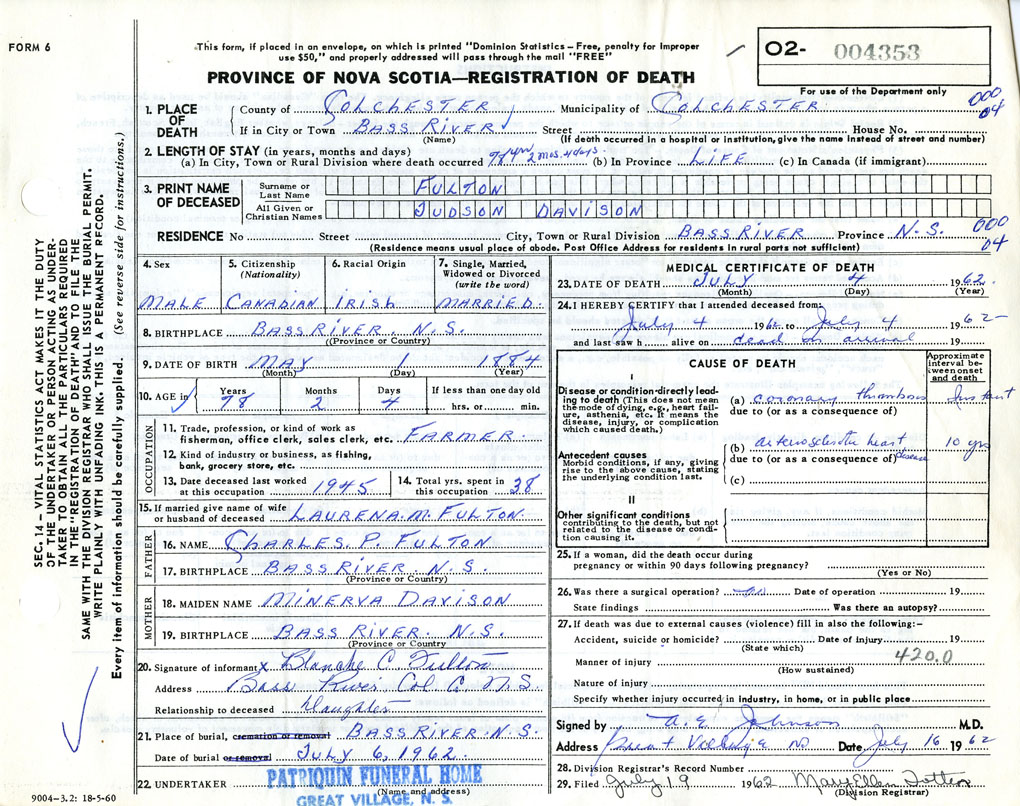 FORM 6
This form, if placed in an envelope, on which is printed "Dominion Statistics – Free, penalty for improper
use $50," and properly addressed will pass through the mail "FREE"
PROVINCE OF NOVA SCOTIA—REGISTRATION OF DEATH
O2- 004353
For use of the Department only
000
04
1. PLACE OF DEATH County of COLCHESTER Municipality of COLCHESTER
If in City or Town BASS RIVER Street House No.
(Name) (If death occurred in a hospital or institution, give the name instead of street and number)
2. LENGTH OF STAY (in years, months and days)
(a) In City, Town or Rural Division where death occurred 78 yrs 2 mos. 4 days. (b) In Province LIFE (c) In Canada (if immigrant)
3. PRINT NAME OF DECEASED
Surname or Last Name FULTON
All Given or Christian Names JUDSON DAVISON
RESIDENCE No Street City, Town or Rural Division BASS RIVER Province N.S. 000
04
(Residence means usual place of abode. Post Office Address for residents in rural parts not sufficient)
4. Sex 5. Citizenship (Nationality) 6. Racial Origin 7. Single, Married, Widowed or Divorced (write the word)
MALE CANADIAN IRISH MARRIED.
8. BIRTHPLACE BASS RIVER. N.S.
((Province or Country)
9. DATE OF BIRTH MAY 1 1884
(Month) (Day) (Year)
10. AGE in Years Months Days If less than one day old
78 2 4 hrs. or min.
OCCUPATION
11. Trade, profession, or kind of work as
fisherman, office clerk, sales clerk, etc. FARMER.
12. Kind of industry or business, as fishing,
bank, grocery store, etc.
13. Date deceased last worked at this occupation 1945 14. Total yrs. spent in this occupation 38
15. If married give name of wife
or husband of deceased LAURENA. M. FULTON.
FATHER
16. NAME CHARLES. P. FULTON
17. BIRTHPLACE BASS RIVER. N.S.
(Province or Country)
MOTHER
18. MAIDEN NAME MINERVA DAVISON
19. BIRTHPLACE BASS RIVER. N.S.
(Province or Country)
20. Signature of informant x Blanche C Fulton
Address Bass River Col Co N.S.
Relationship to deceased Daughter
21. Place of burial, cremation or removal BASS RIVER. N.S.
Date of burial or removal JULY 6, 1962.
22. UNDERTAKER PATRIQUIN FUNERAL HOME
(Name and address)
GREAT VILLAGE, N. S.
9004–3.2: 18-5-60
MEDICAL CERTIFICATE OF DEATH
23. DATE OF DEATH JULY 4 1962.
(Month) (Day) (Year)
24. I HEREBY CERTIFY that I attended deceased from:
July 4 1962 to July 4 1962
and last saw h alive on dead on arrival 19
CAUSE OF DEATH
Approximate interval between onset and death
I
Disease or condition directly leading to death (This does not mean the mode of dying, e.g., heart failure, asthenia, etc. It means the disease, injury, or complication which caused death.)
(a) coronary thrombosis Instant
due to (or as a consequence of)
Antecedent causes
Morbid conditions, if any, giving rise to the above cause, stating the underlying condition last.
(b) arteriosclerotic heart disease 10 yrs
due to (or as a consequence of)
(c)
II
Other significant conditions
contributing to the death, but not related to the disease or condition causing it.
25. If a woman, did the death occur during
pregnancy or within 90 days following pregnancy?
(Yes or No)
26. Was there a surgical operation? no Date of operation 19
State findings Was there an autopsy?
27. If death was due to external causes (violence) fill in also the following:-
Accident, suicide or homicide? Date of injury 19
(State which)
420.0
Manner of injury
(How sustained)
Nature of injury
Specify whether injury occurred in industry, in home, or in public place
Signed by A. E. Johnson M.D.
Address Great Village NS Date July 16 1962
28. Division Registrar's Record Number
29. Filed July 19 1962 Mary Ellen
(Division Registrar)
SEC. 14 – VITAL STATISTICS ACT MAKES IT THE DUTY
OF THE UNDERTAKER OR PERSON ACTING AS UNDER-
TAKER TO OBTAIN ALL THE PARTICULARS REQUIRED
IN THE "REGISTRATION OF DEATH" AND TO FILE THE
SAME WITH THE DIVISION REGISTRAR WHO SHALL ISSUE THE BURIAL PERMIT.
WRITE PLAINLY WITH UNFADING INK. THIS IS A PERMANENT RECORD.
Every item of information should be carefully supplied. (See reverse side for instructions.)